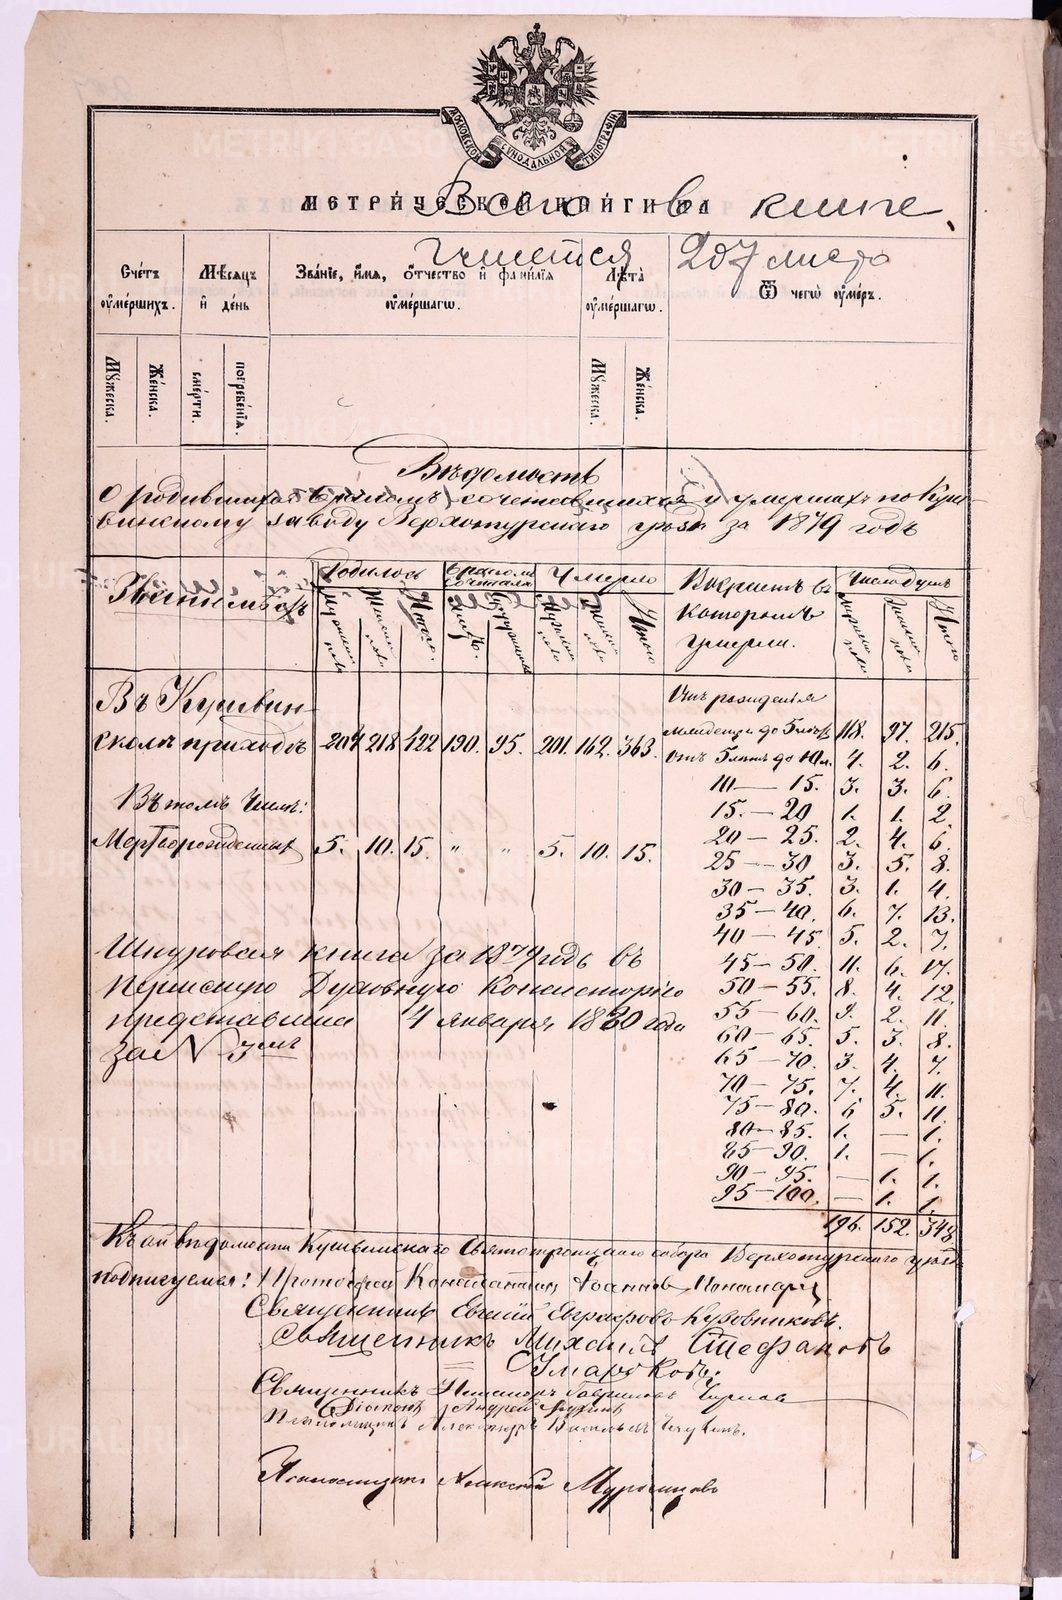 МОСКОВСКОЙ СѴНОДАЛЬНОЙ ТИПОГРАФІИ
МЕТРИЧЕСКОЙ КНИГИ НА
Всего в книге
числится 207 листа
Счетъ оумершихъ.
Мѣсяцъ и день
Званіе, имя, отчество и фамилія оумершагѡ.
Лѣта оумершагѡ.
Ѿ чегѡ оумеръ.
Мꙋжеска.
Женска.
смерти.
погребенія.
Мꙋжеска.
Женска.
Вѣдомость
о родившихся бракомъ сочетавшихся и умершихъ по Куш-
винскому заводу Верхотурскаго уѣзда за 1879 годъ
Званіе мѣстъ
Родилось
Бракомъ сочеталось
Умерло
Возрастъ въ которомъ умерли.
Число душъ
Мужеска пола
Женска пола
Итого.
Мужеска пола
Женска пола
Итого
Мужеска пола
Женска пола
Итого
Въ Кушвин-
скомъ приходѣ 204 218 422 190. 95. 201. 162. 363.
Отъ рожденія
младенцы до 5 лѣтъ 118. 97. 215.
Отъ 5 лѣтъ до 10 л. 4. 2. 6.
10 — 15. 3. 3. 6.
Въ томъ числѣ:
15. — 20 1. 1. 2.
Мертворожденныхъ 5. 10. 15. " " 5. 10. 15.
20 — 25. 2. 4. 6.
25 — 30 3. 5. 8.
30 — 35. 3. 1. 4.
35 — 40. 6. 7. 13.
40 — 45. 5. 2. 7.
45 — 50. 11. 6. 17.
50 — 55. 8. 4. 12.
55 — 60. 9. 2. 11.
60 — 65. 5. 3. 8.
65 — 70. 3. 4. 7.
70 — 75. 7. 4. 11.
75 — 80. 6 5. 11.
80 — 85. 1. — 1.
85 — 90. 1. — 1.
90 — 95. — 1. 1.
95 — 100. — 1. 1.
196. 152. 348
Шнуровая книга за 1879 годъ въ
Пермскую Духовную Консисторію
представлена 4 января 1880 года
за № 3мъ
Къ сей вѣдомости Кушвинскаго Святотроицкаго собора Верхотурскаго уѣзда
подписуемся: Протоіерей Константинъ Іоанновъ Пономаревъ
Священникъ Евгеній Аграфово-Кудовниковъ.
Священникъ Михаилъ Стефановъ
Священникъ Гавриловъ
Діаконъ Андрей
Псаломщикъ Александръ Васильевъ
Псаломщикъ Алексѣй